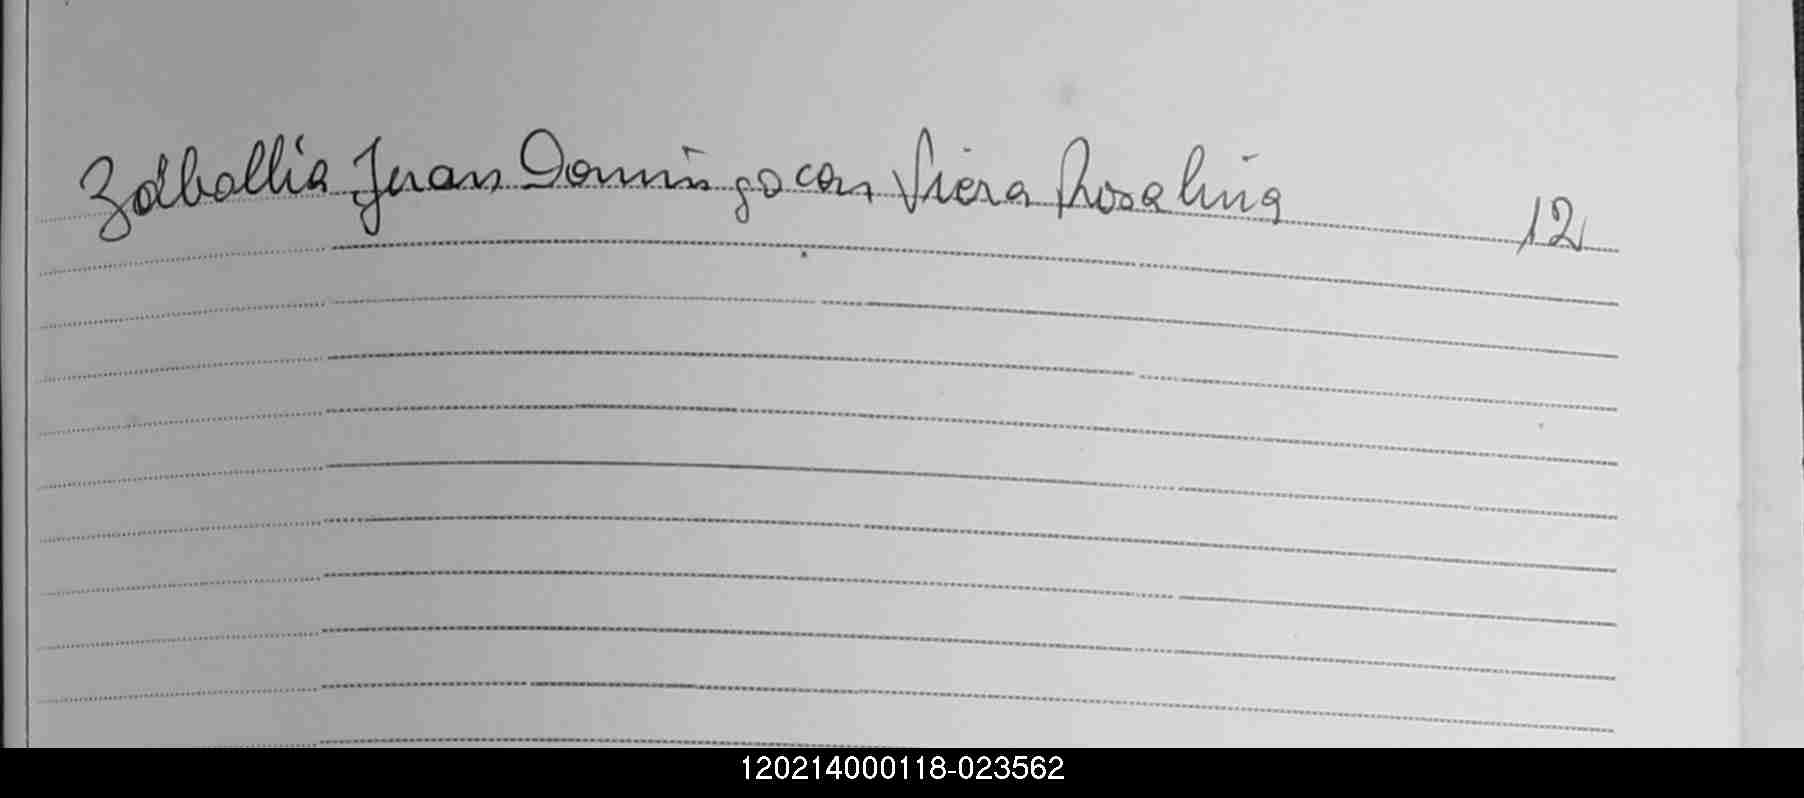 Zalballia Juan Domingo con Viera Rosalina 12
120214000118-023562